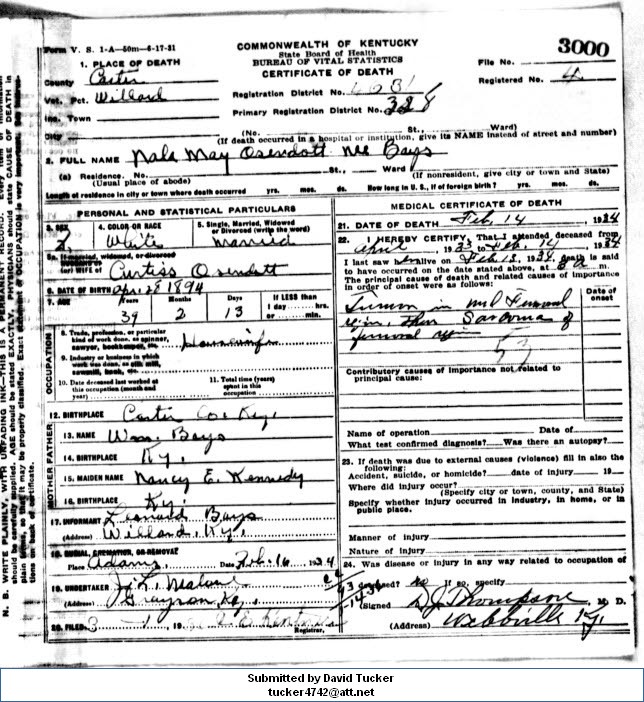 Form V. S. 1-A—50m—6-17-31
COMMONWEALTH OF KENTUCKY
State Board of Health
BUREAU OF VITAL STATISTICS
CERTIFICATE OF DEATH
3000
File No.
Registered No. 4
1. PLACE OF DEATH
County Carter
Vot. Pct. Willard
Inc. Town
City
Registration District No.
Primary Registration District No. 328
(No. St., Ward)
(If death occurred in a hospital or institution, give its NAME instead of street and number)
2. FULL NAME Nala May Osendott nee Bays
(a) Residence. No. St., Ward
(Usual place of abode) (If nonresident, give city or town and State)
Length of residence in city or town where death occurred yrs. mos. ds. How long in U. S., if of foreign birth? yrs. mos. ds.
PERSONAL AND STATISTICAL PARTICULARS
3. SEX
4. COLOR OR RACE
White
5. Single, Married, Widowed
or Divorced (write the word)
Married
5a. If married, widowed, or divorced
(or) WIFE of Curtiss Osendott
6. DATE OF BIRTH Apr. 28 1894
7. AGE Years Months Days If LESS than
1 day hrs.
or min.
39 2 13
OCCUPATION
8. Trade, profession, or particular
kind of work done, as spinner,
sawyer, bookkeeper, etc.
Housewife
9. Industry or business in which
work was done, as silk mill,
sawmill, bank, etc.
10. Date deceased last worked at
this occupation (month and
year)
11. Total time (years)
spent in this
occupation
12. BIRTHPLACE Carter Co. Ky.
MOTHER FATHER
13. NAME Wm. Bays
14. BIRTHPLACE Ky.
15. MAIDEN NAME Nancy E. Kennedy
16. BIRTHPLACE Ky.
17. INFORMANT Leonard Bays
(Address) Willard, Ky.
18. BURIAL, CREMATION, OR REMOVAL
Place Adams Date Feb. 16 1934
19. UNDERTAKER J. L. Malone
(Address) Grayson Ky.
20. FILED 3 - 1 19
Registrar.
MEDICAL CERTIFICATE OF DEATH
21. DATE OF DEATH Feb. 14 1934
22. I HEREBY CERTIFY, That I attended deceased from
April 1933 to Feb. 14 1934
I last saw alive on Feb 13, 1934, death is said
to have occurred on the date stated above, at 8 a m.
The principal cause of death and related causes of importance
in order of onset were as follows:
Date of
onset
Tumor in Femoral
then Sarcoma of
femoral
Contributory causes of importance not related to
principal cause:
Name of operation Date of
What test confirmed diagnosis? Was there an autopsy?
23. If death was due to external causes (violence) fill in also the
following:
Accident, suicide, or homicide? date of injury 19
Where did injury occur?
(Specify city or town, county, and State)
Specify whether injury occurred in industry, in home, or in
public place.
Manner of injury
Nature of injury
24. Was disease or injury in any way related to occupation of
deceased? no If so, specify
(Signed D J Thompson M. D.
(Address) Webbville Ky.
N. B. WRITE PLAINLY, WITH UNFADING INK—THIS IS A PERMANENT RECORD. Every item of information
should be carefully supplied. AGE should be stated EXACTLY. PHYSICIANS should state CAUSE OF DEATH in
plain terms, so that it may be properly classified. Exact statement of OCCUPATION is very important. See instruc-
tions on back of certificate.
Submitted by David Tucker
tucker4742@att.net